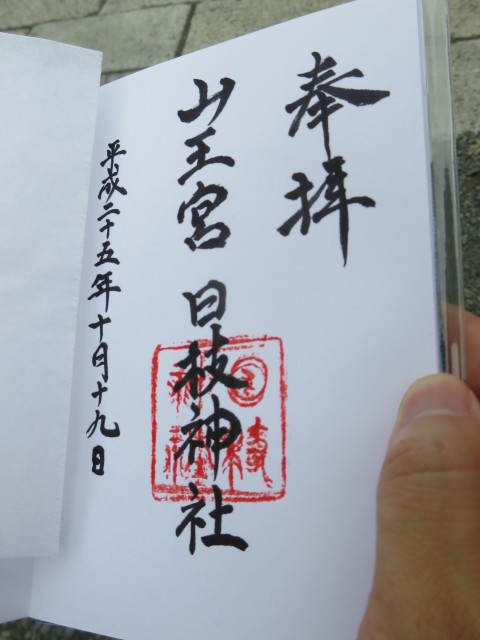 奉拝
山王宮 日枝神社
平成二十五年十月十九日